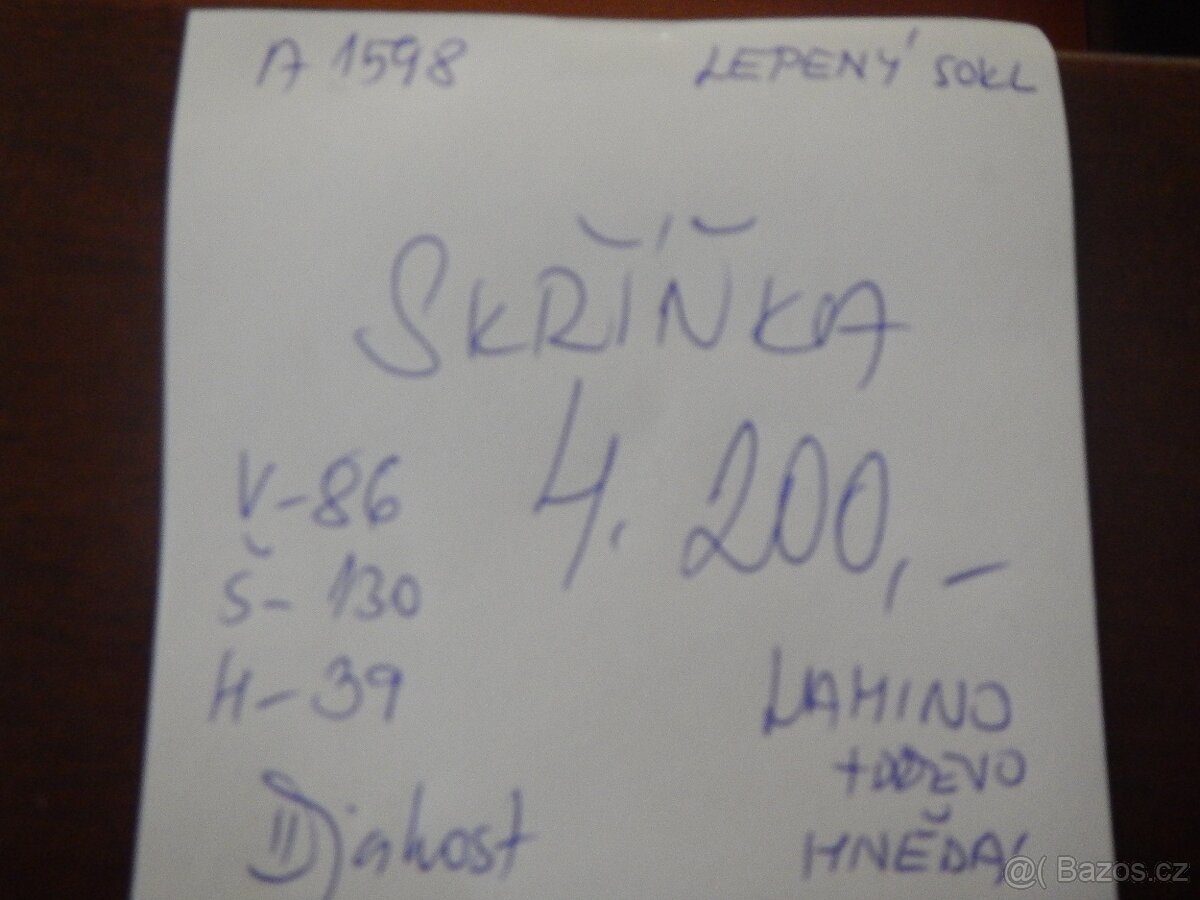 A 1598 LEPENÝ SOKL
SKŘÍŇKA
4.200,-
V-86
Š-130
H-39
LAMINO
+DŘEVO
HNĚDÁ
II jakost
@( Bazos.cz